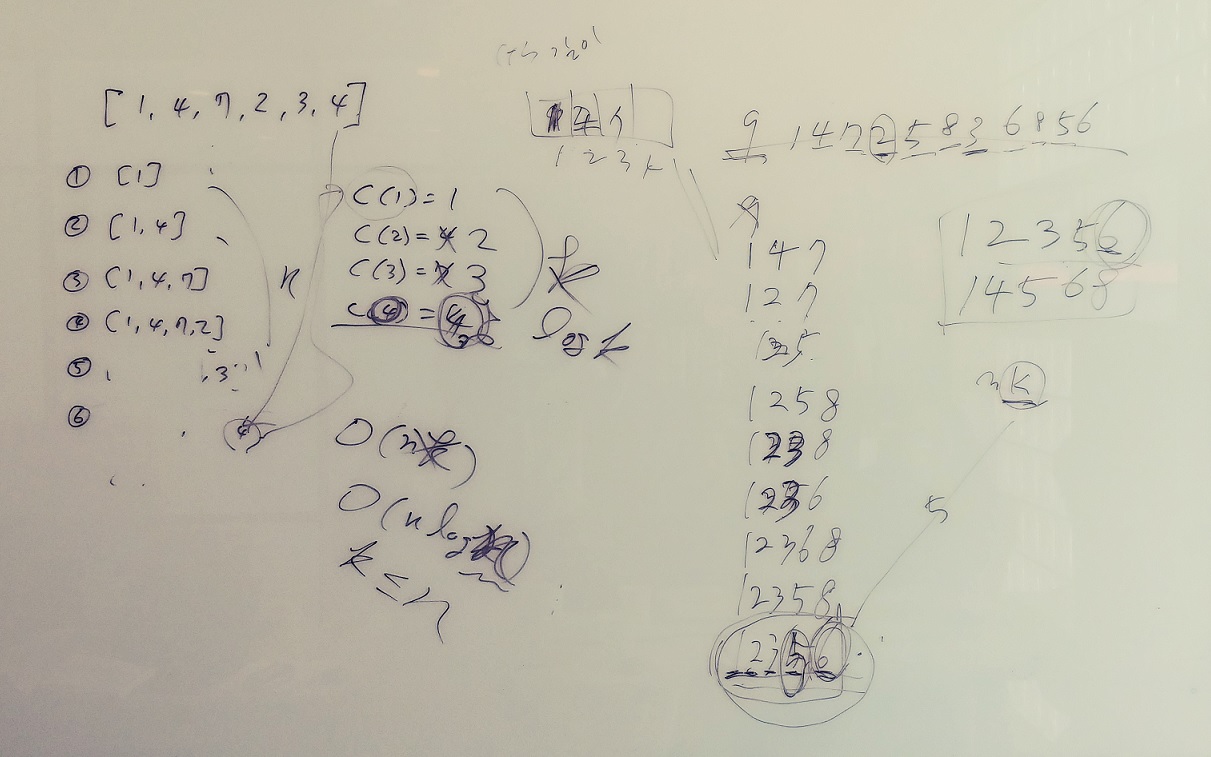 [ 1, 4, 7, 2, 3, 4 ]
① [1]
② [1, 4]
③ [1, 4, 7]
④ [1, 4, 7, 2]
⑤ , 3
⑥ 4
n
C(1) = 1
C(2) = 2
C(3) = 3
log k
O(n
O(n log
k ≤ n
1 2 3 4
9 1 4 7 2 5 8 3 6 8 5 6
9
1 4 7
1 2 7
1 2 5 8
1 2 3 8
1 2 3 6
1 2 3 6 8
1 2 3 5 8
1 2 3 5 6
1 2 3 5 6
1 4 5 6 8
n k
5